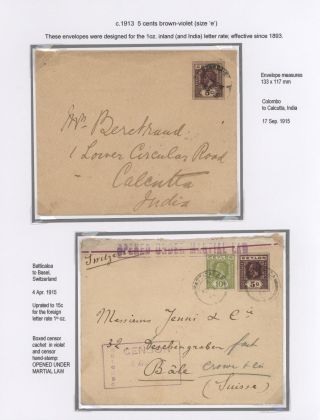 c.1913 5 cents brown-violet (size 'e')
These envelopes were designed for the 1oz. inland (and India) letter rate; effective since 1893.
Envelope measures
133 x 117 mm
Colombo
to Calcutta, India
17 Sep. 1915
5c
Mrs Berestrand
1 Lower Circular Road
Calcutta
India
Batticaloa
to Basel,
Switzerland
4 Apr. 1915
Uprated to 15c
for the foreign
letter rate 1ˢᵗ oz.
Boxed censor
cachet in violet
and censor
hand-stamp:
OPENED UNDER
MARTIAL LAW
OPENED UNDER MARTIAL LAW
CEYLON
CEYLON
10c
5c
Messieurs Jenni & Cie
32
Bâle
(Suisse)
CENSOR